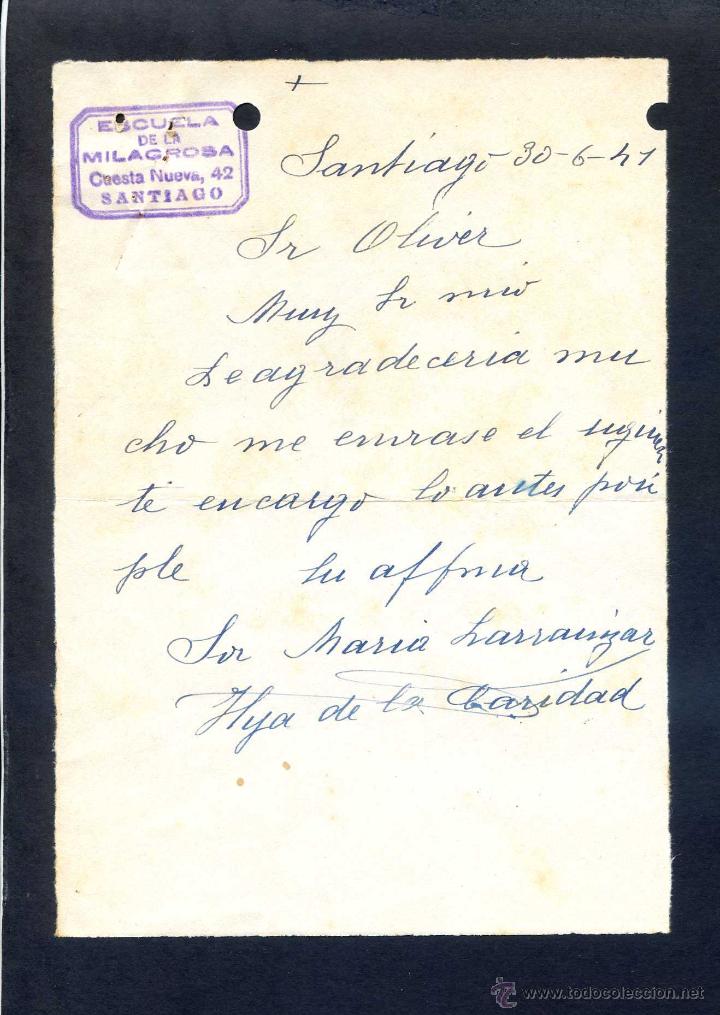 +
ESCUELA
DE LA
MILAGROSA
Cuesta Nueva, 42
SANTIAGO
Santiago 30-6-41
Sr Oliver
Muy Sr mio
Le agradeceria mu
cho me enviase el siguien
te encargo lo antes posi
ple su affma
Sor Maria Larrainzar
Hija de la Caridad
© www.todocoleccion.net